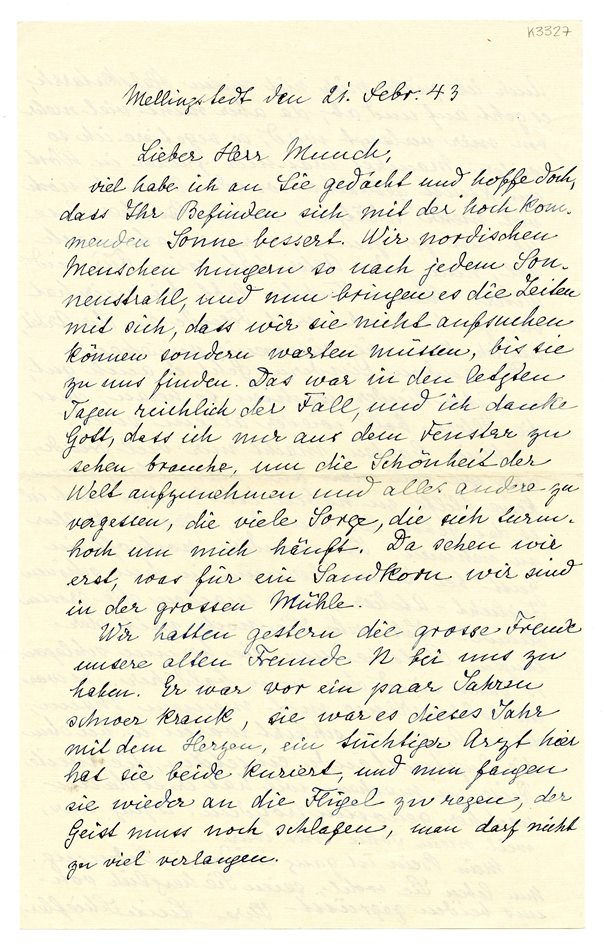 K3327
Mellingstedt den 21. Febr. 43
Lieber Herr Munch,
viel habe ich an Sie gedacht und hoffe doch,
dass Ihr Befinden sich mit der hoch kom-
menden Sonne bessert. Wir nordischen
Menschen hungern so nach jedem Son-
nenstrahl, und nun bringen es die Zeiten
mit sich, dass wir sie nicht aufsuchen
können sondern warten müssen, bis sie
zu uns finden. Das war in den letzten
Tagen reichlich der Fall, und ich danke
Gott, dass ich nur aus dem Fenster zu
sehen brauche, um die Schönheit der
Welt aufzunehmen und alles andere zu
vergessen, die viele Sorge, die sich turm-
hoch um mich häuft. Da sehen wir
erst, was für ein Sandkorn wir sind
in der grossen Mühle.
Wir hatten gestern die grosse Freude
unsere alten Freunde N bei uns zu
haben. Er war vor ein paar Jahren
schwer krank, sie war es dieses Jahr
mit dem Herzen, ein tüchtiger Arzt hier
hat sie beide kuriert, und nun fangen
sie wieder an die Flügel zu regen, der
Geist muss noch schlafen, man darf nicht
zu viel verlangen.